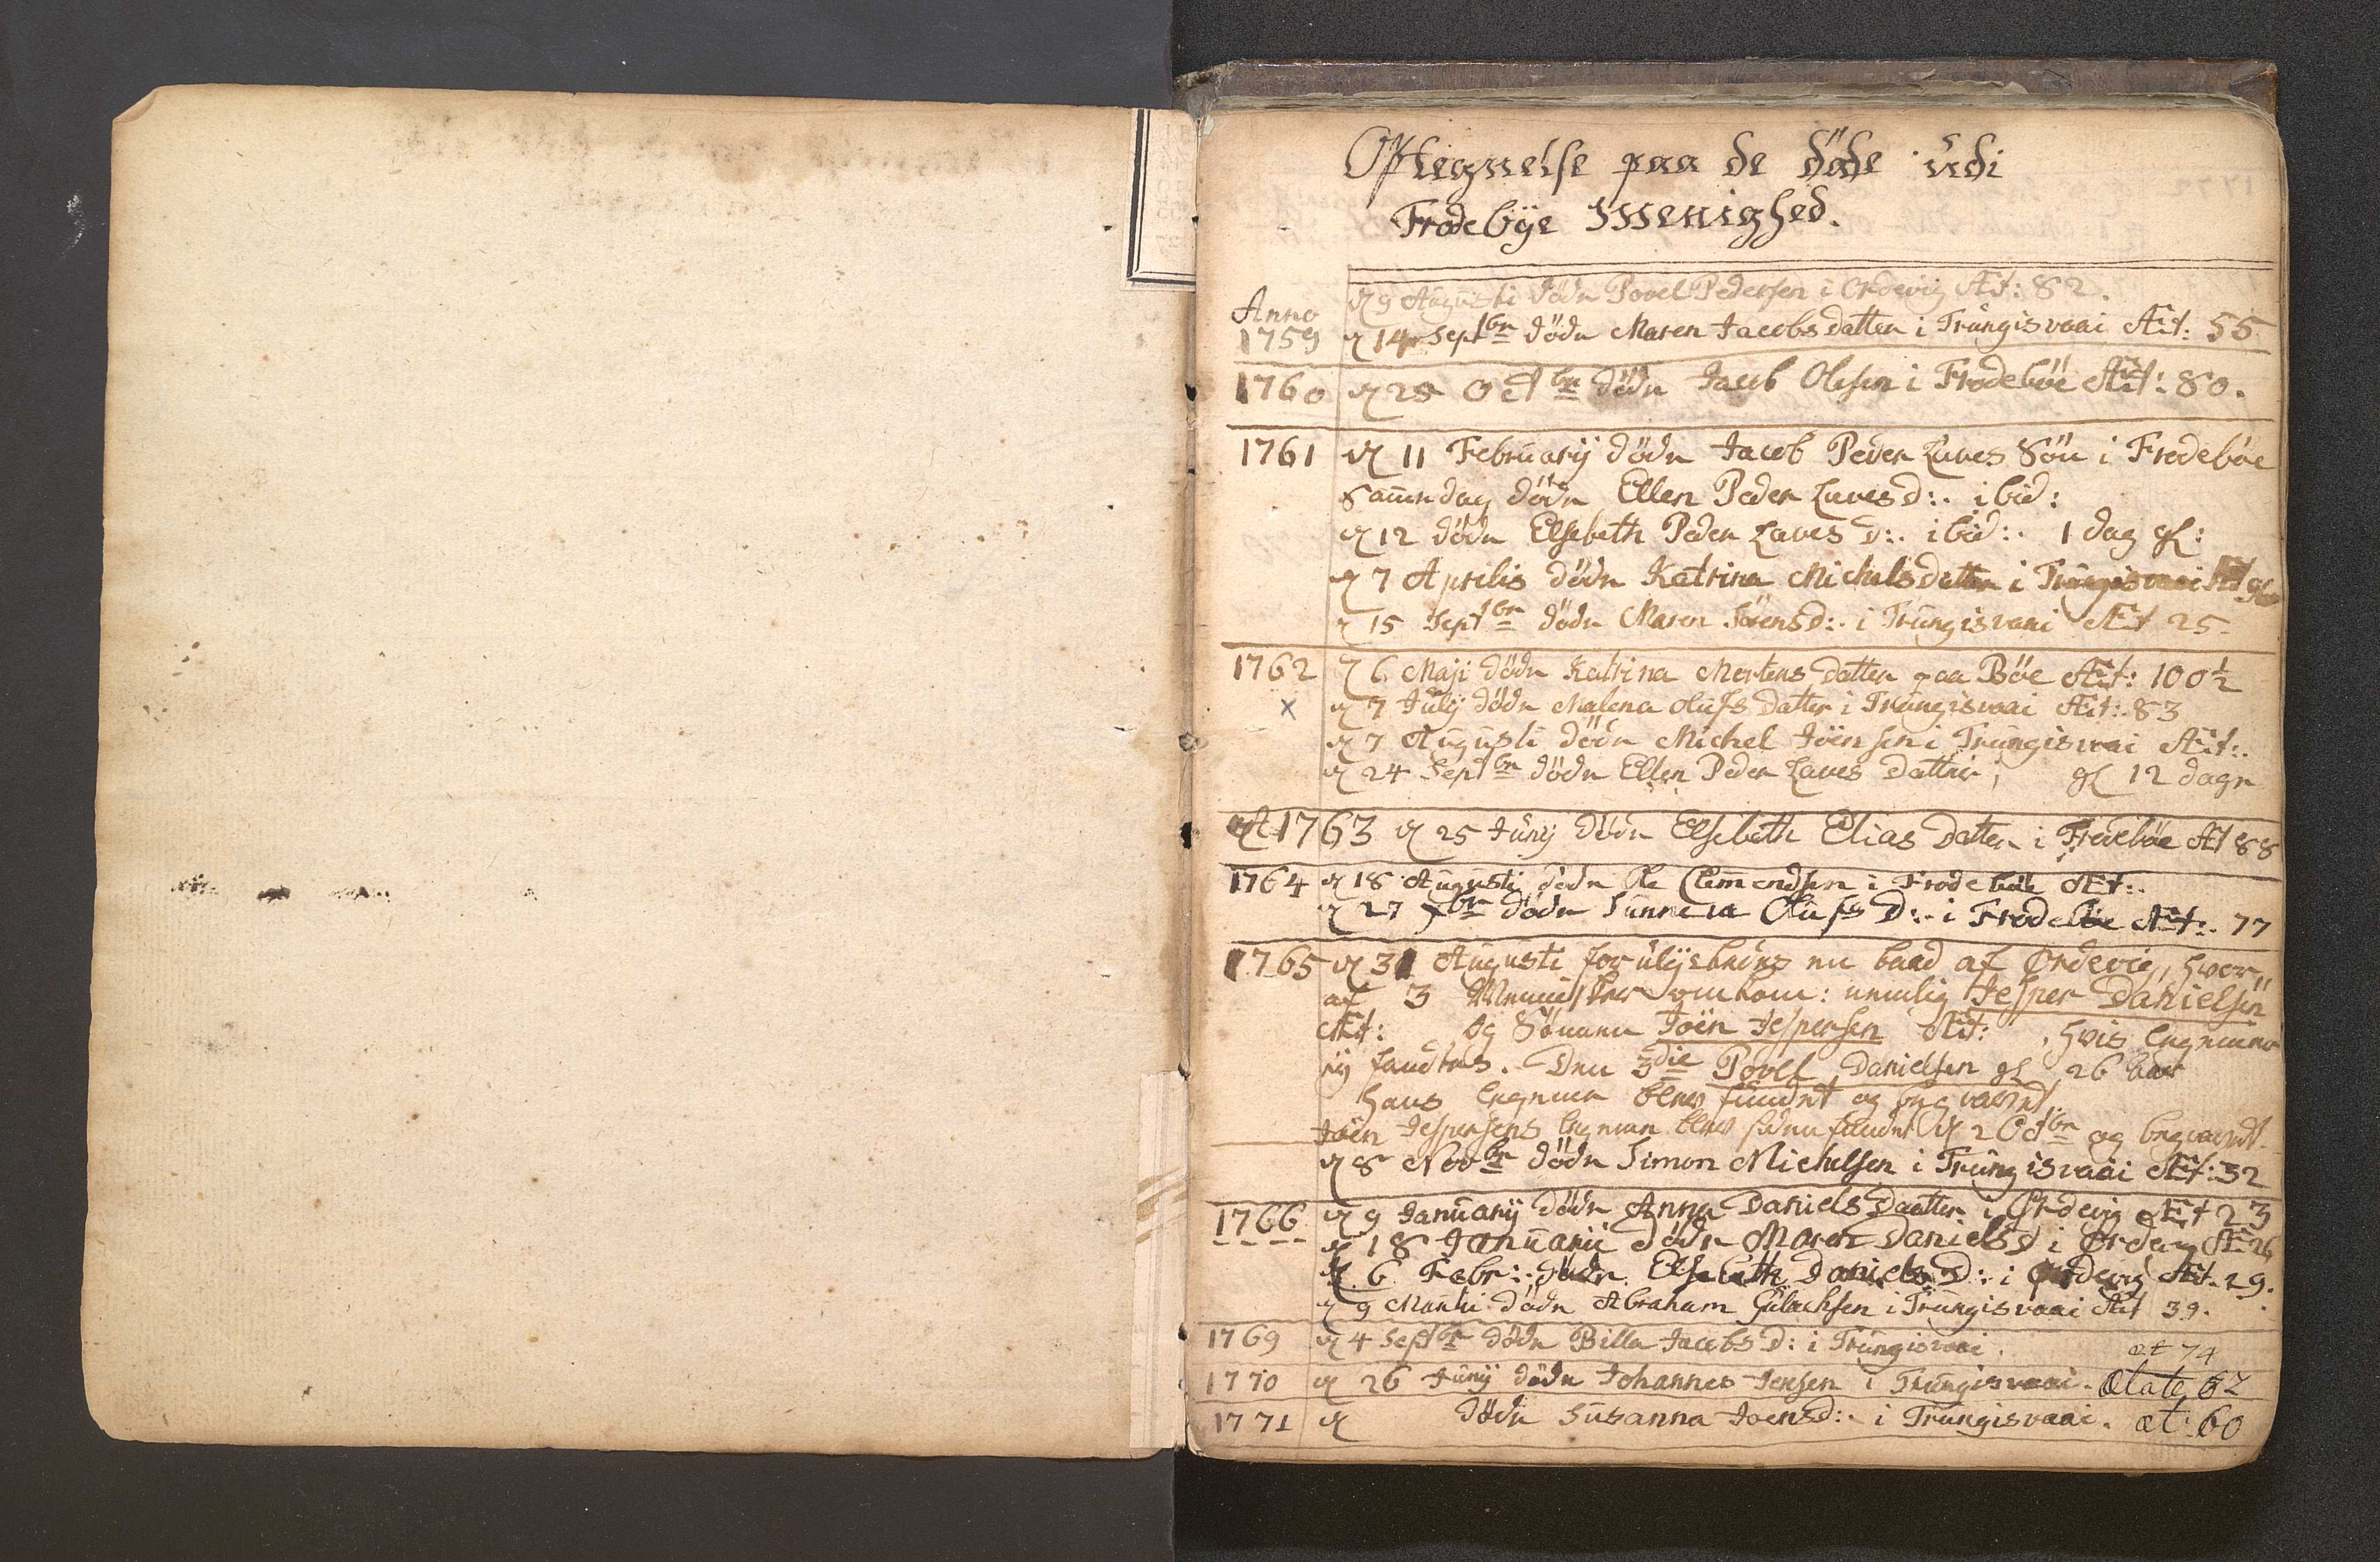 Optegnelse paa de döde udi
Frodebÿe Menighed.
Anno
d 9 Augusti döde Povel Pedersen i Ordevig Æt: 82.
1759 d 14 Septbr döde Maren Jacobs datter i Trungisvaai Æt: 55
1760 d 28 Octbr döde Jacob Olesen i Frodeböe Æt: 80.
1761 d 11 Februarÿ döde Jacob Peder Laves Sön i Frodeböe
Samme dag döde Ellen Peder Laves d:. ibid:
d 12 döde Elsebeth Peder Laves D:. ibid:. 1 dag gl:
d 7 Aprilis döde Katrina Michels datter i Trungisvaai
d 15 Septbr döde Maren Sörens d:. i Trungisvaai Æt 25.
1762 d 6 Maji döde Katrina Mortens datter paa Böe Æt: 100½
x d 7 Julÿ döde Malena Olufs datter i Trungisvaai Æt:. 83
d 7 Augusti döde Michel Joensen i Trungisvaai Æt:.
d 24 Septbr döde Ellen Peder Laves datter, gl 12 dage
A 1763 d 25 Junÿ döde Elsebeth Elias Datter i Frodeböe Æt 88
1764 d 18 Augusti döde Ole Clemendsen i Frodeböe Æt:.
d 27 7br döde Sunneva Olufs D:. i Frodeböe Æt:. 77
1765 d 31 Augusti forulÿckedes en baad af Ørdevig, hvor,,
af 3 Mennisker omkom: nemlig Jesper Danielsen
Æt: og Sönnen Joen Jespersen Æt: , hvis legemer
eÿ fandtes. Den 3die Povel Danielsen gl 26 aar
hans legeme blev fundet og begravet.
Joen Jespersens legeme blev siden fundet d 2 Octbr og begravet.
d 8 Novbr döde Simon Michelsen i Trungisvaai Æt: 32
1766 d 9 Januarÿ döde Anna Daniels Daatter i Ørdevig Æt 23
d 18 Januarii döde Maren Daniels d i Ørdevig Æt 26
d 6 Febr:. döde Elsebeth Daniels D:. i Ørdevig Æt. 29.
d 9 Martii döde Abraham Gulachsen i Trungisvaai Æt 39.
1769 d 4 Septbr döde Billa Jacobs D: i Trungisvaai. æt 74
1770 d 26 Junÿ döde Johannes Jensen i Trungisvaai. Ætate 62
1771 d döde Susanna Joens d:. i Trungisvaai. æt: 60